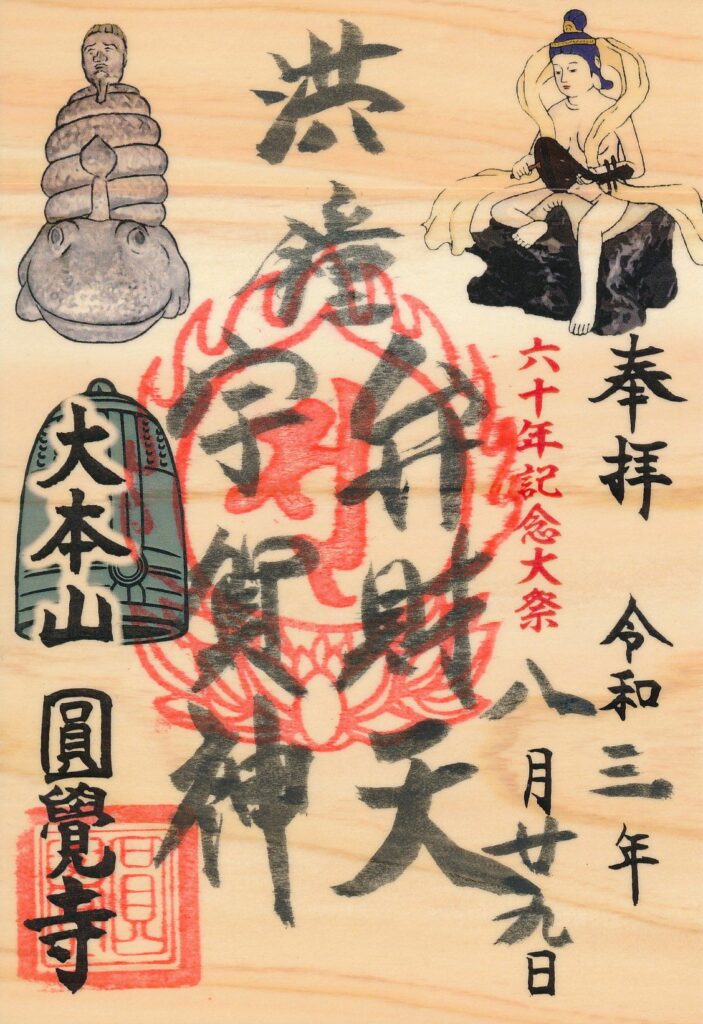 奉拝
令和三年
八月廿九日
六十年記念大祭
洪鐘
弁財天
宇賀神
大本山
圓覺寺